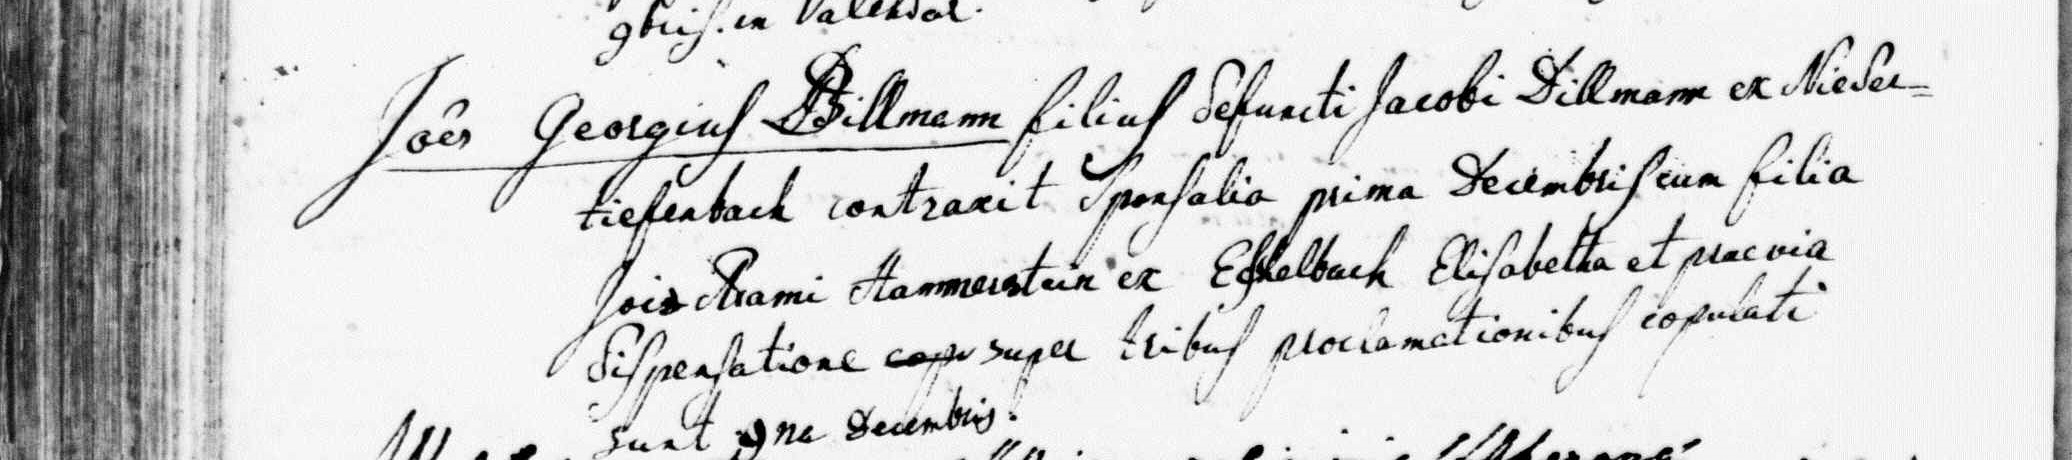 9bris. in Valendar.
Joês Georgius Dillmann filius defuncti Jacobi Dillmann ex Nieder=
tiefenbach contraxit Sponsalia prima Decembris cum filia
Jois Adami Hammerstein ex Eschelbach Elisabetha et praevia
dispensatione super tribus proclamationibus copulati
sunt 9na Decembris.